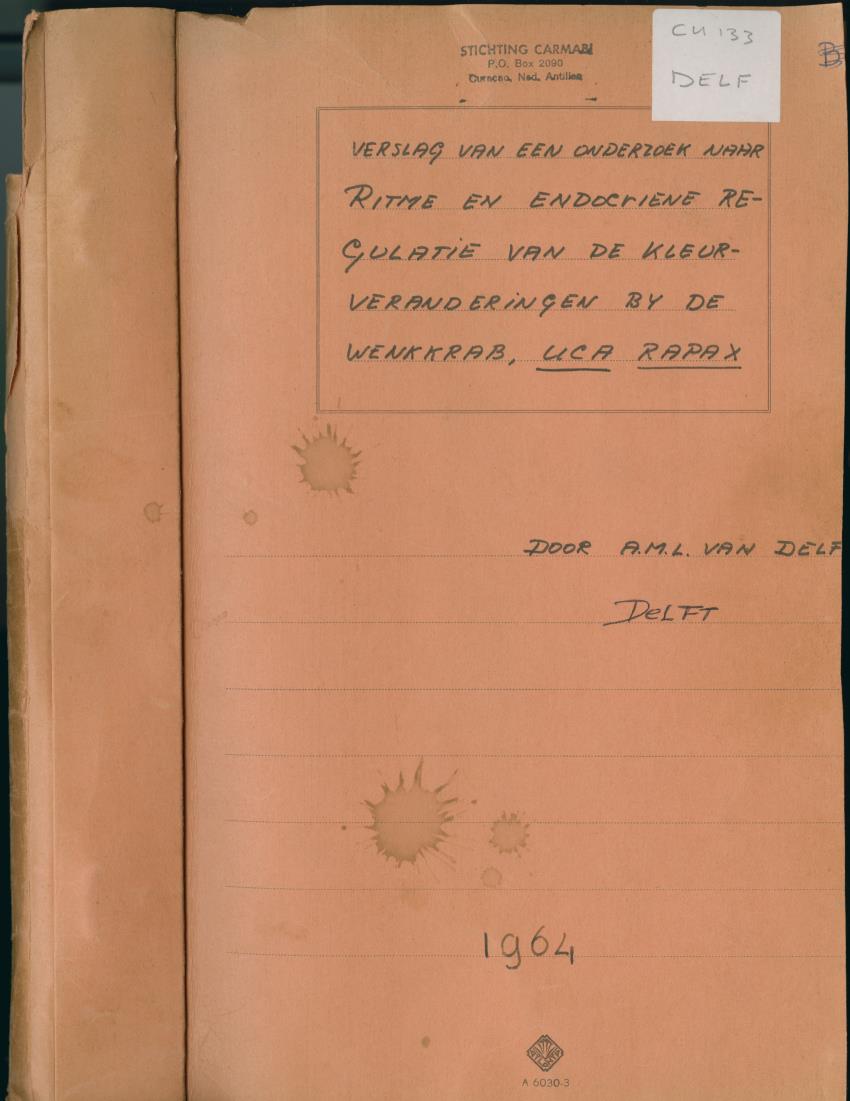 STICHTING CARMABI
P.O. Box 2090
Curacao, Ned. Antillen
CU 133
DELF
B
VERSLAG VAN EEN ONDERZOEK NAAR
RITME EN ENDOCRIENE RE-
GULATIE VAN DE KLEUR-
VERANDERINGEN BY DE
WENKKRAB, UCA RAPAX
DOOR A.M.L. VAN DELF
DELFT
1964
ATLANTA
A 6030-3